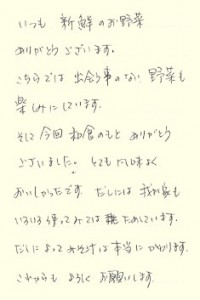 いつも 新鮮のお野菜
ありがとうございます。
こちらでは 出会う事のない 野菜も
楽しみにしています。
そして 今回 和食のもと ありがとう
ございました。とても 風味よく
おいしかったです。だしには 我が家も
いろいろ 使ってみては ためしています。
だしによって お汁は 本当に かわります。
これからも よろしく お願いします。